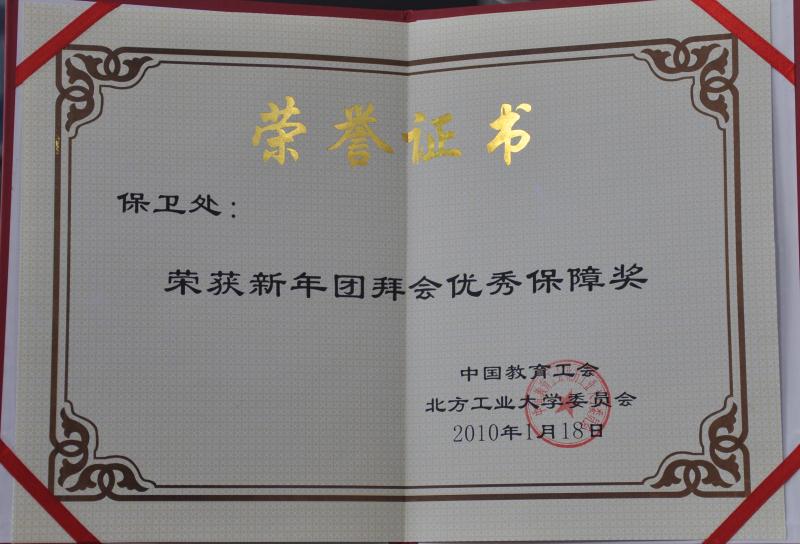 荣誉证书
保卫处：
荣获新年团拜会优秀保障奖
中国教育工会
北方工业大学委员会
2010年1月18日